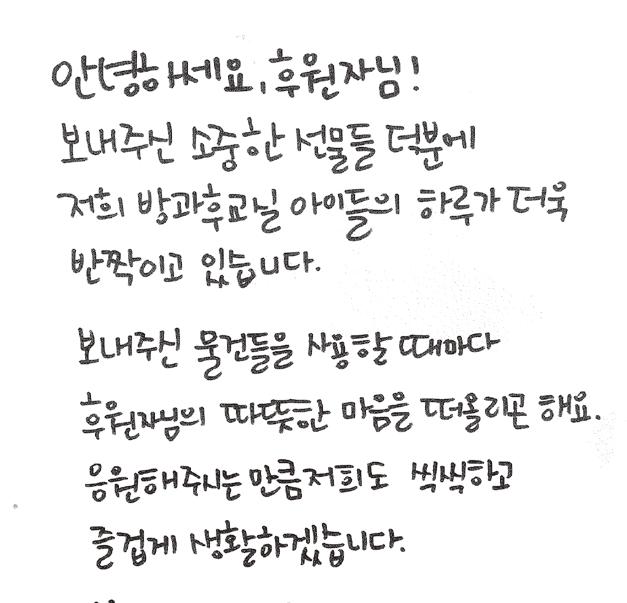 안녕하세요, 후원자님!
보내주신 소중한 선물들 덕분에
저희 방과후교실 아이들의 하루가 더욱
반짝이고 있습니다.
보내주신 물건들을 사용할 때마다
후원자님의 따뜻한 마음을 떠올리곤 해요.
응원해주시는 만큼 저희도 씩씩하고
즐겁게 생활하겠습니다.